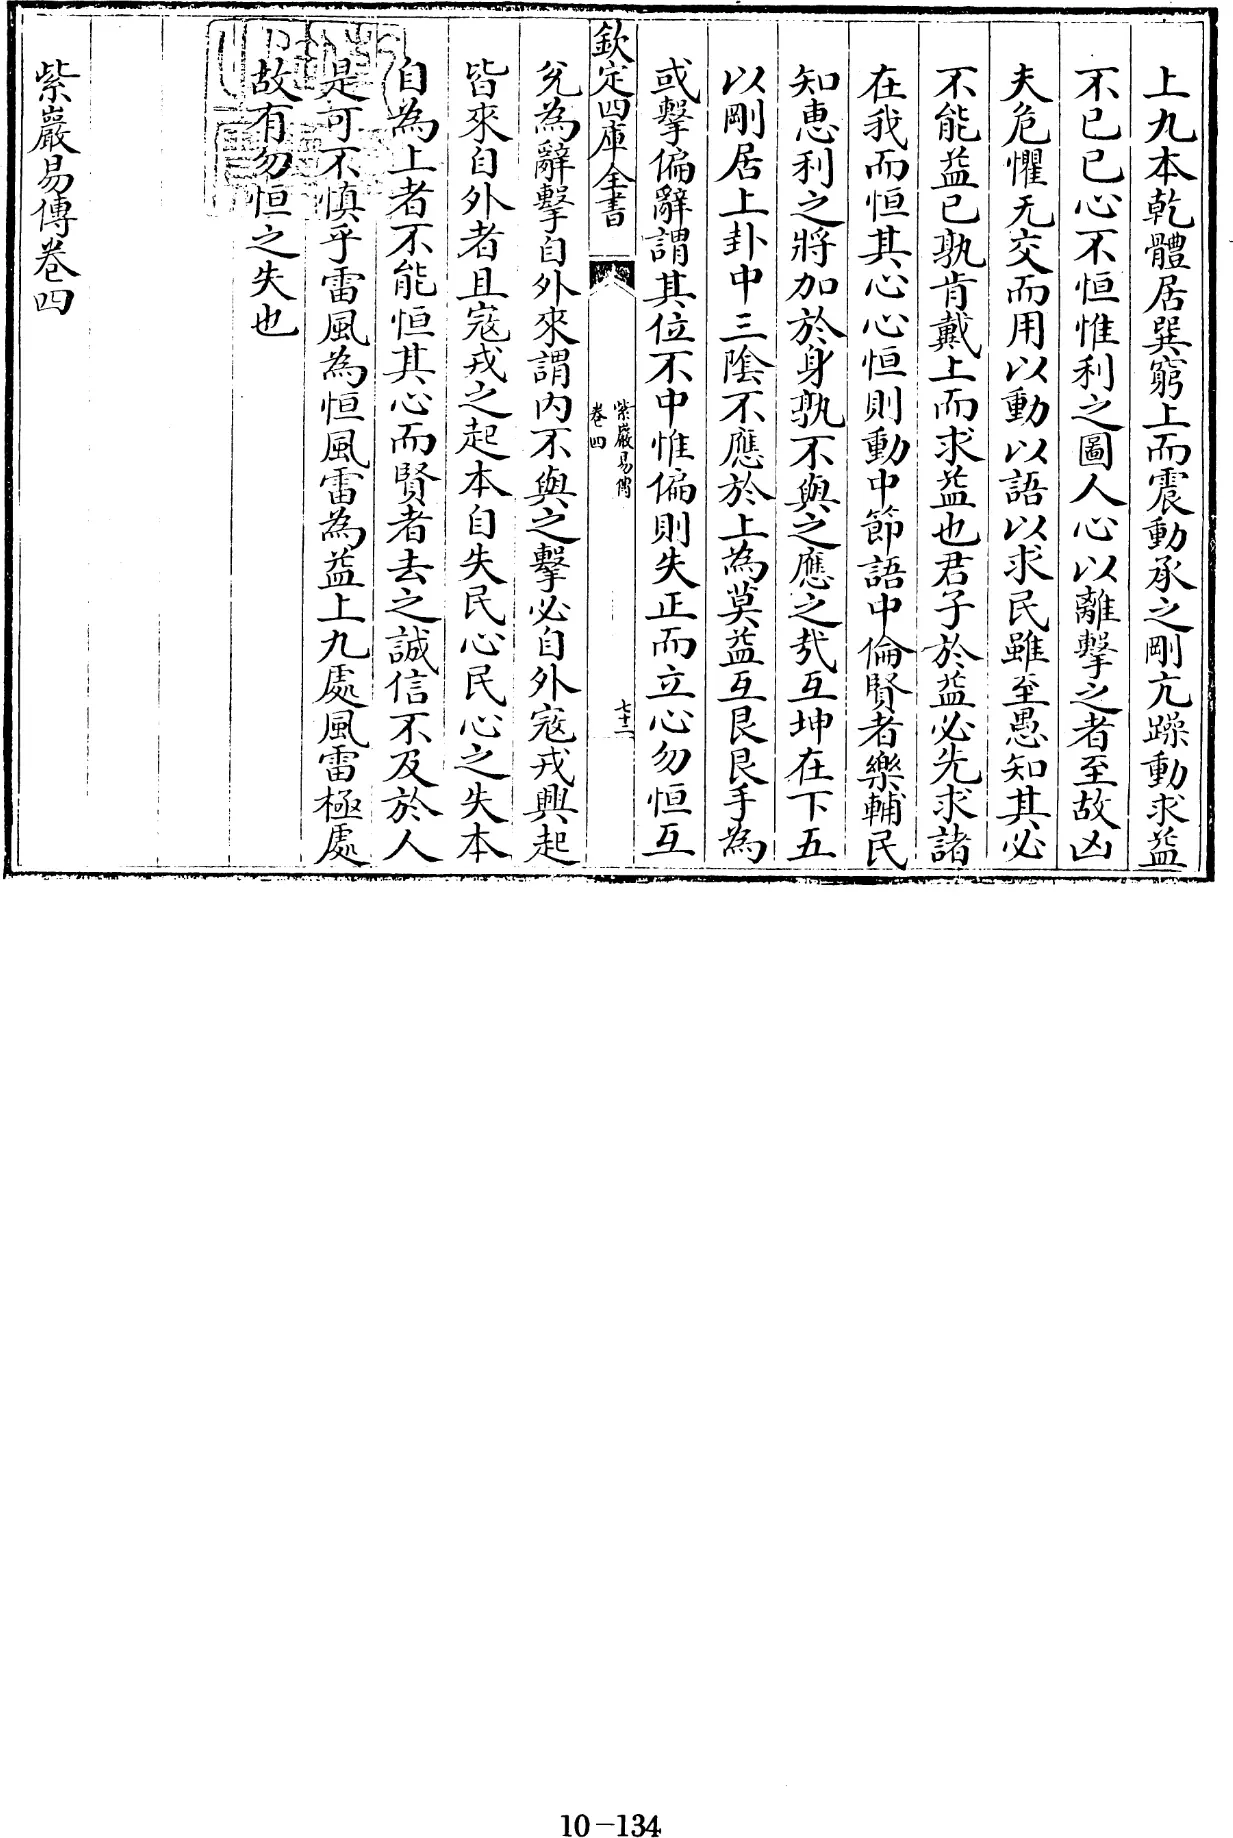 上九本乾體居巽窮上而震動承之剛亢躁動求益
不已已心不恒惟利之圖人心以離擊之者至故凶
夫危懼无交而用以動以語以求民雖至愚知其必
不能益已孰肯戴上而求益也君子於益必先求諸
在我而恒其心心恒則動中節語中倫賢者樂輔民
知惠利之將加於身孰不與之應之㢤互坤在下五
以剛居上卦中三陰不應於上為莫益互艮艮手為
或擊偏辭謂其位不中惟偏則失正而立心勿恒互
欽定四庫全書
紫巖易傳
卷四
七十二
兊為辭擊自外來謂内不與之擊必自外寇戎興起
皆來自外者且寇戎之起本自失民心民心之失本
自為上者不能恒其心而賢者去之誠信不及於人
是可不慎乎雷風為恒風雷為益上九處風雷極處
故有勿恒之失也
紫巖易傳卷四
10-134